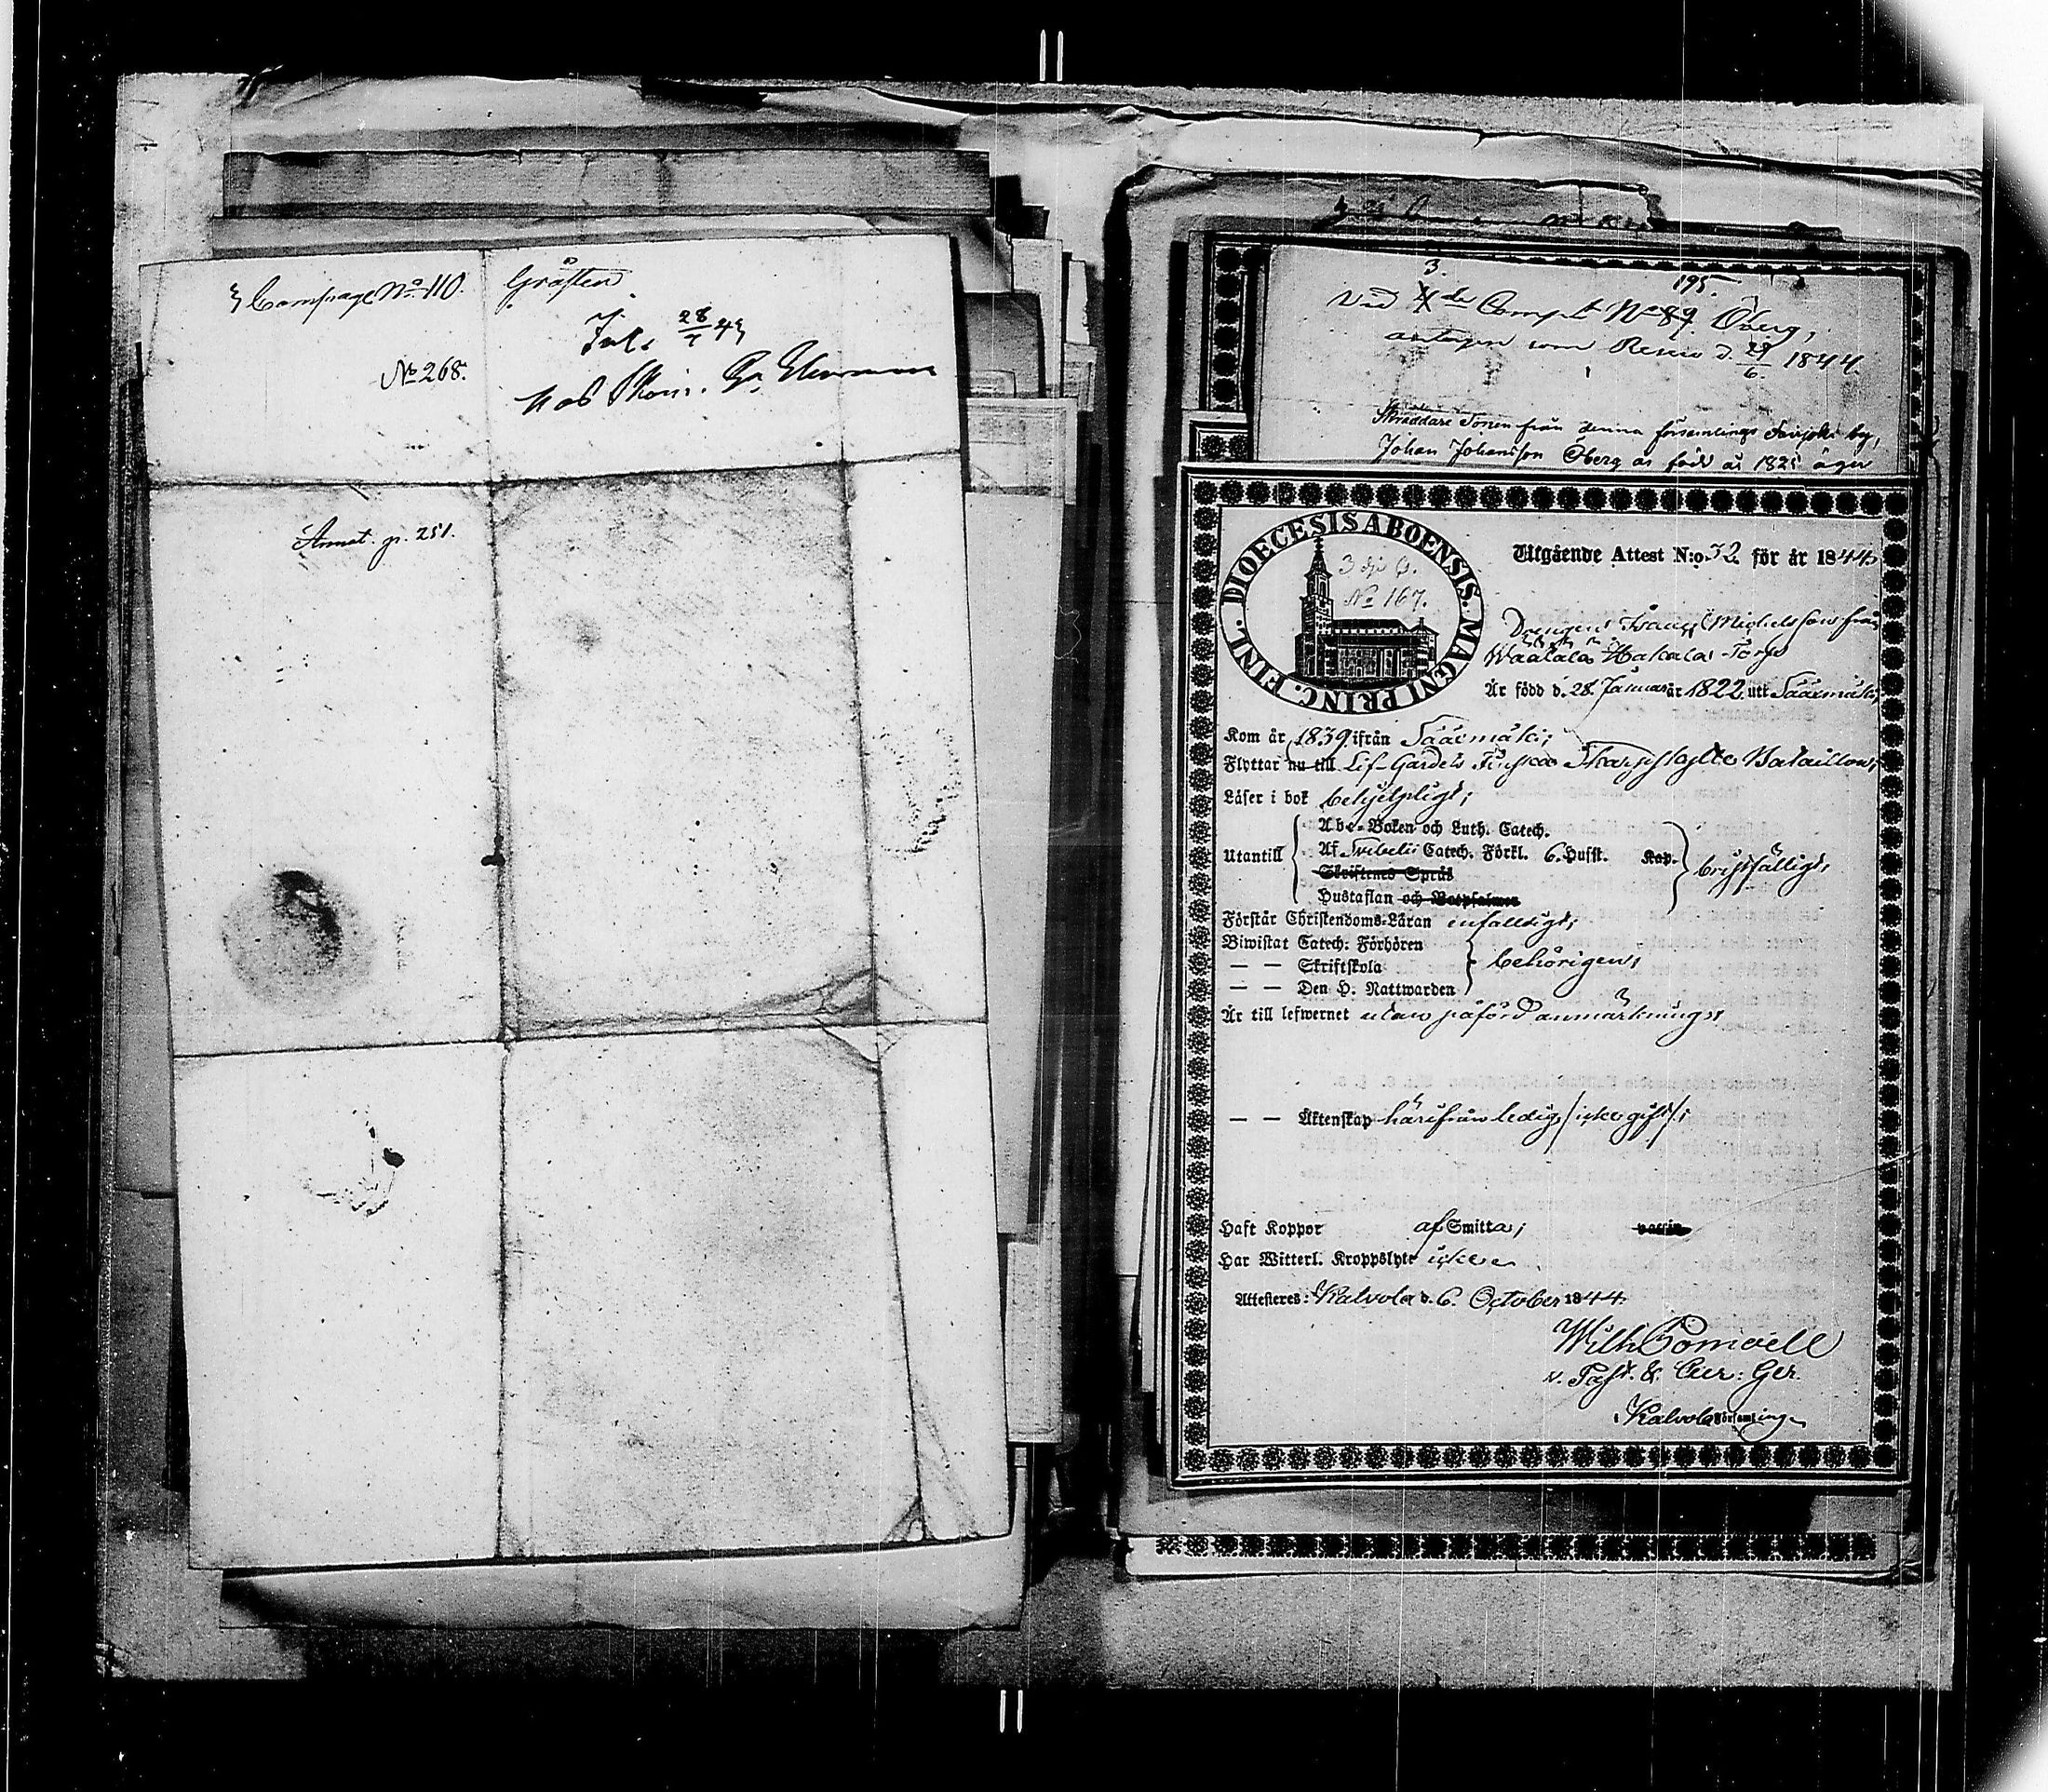 3 Compagie No 110. Gråsten
Ink. 28/7 43
No 268.
Annot. p. 251.
3. 195.
Vid 4 de Comp. No 89. Öberg,
antagen som Recrut d. 29/6. 1844.
Skräddare Sonen från denna församlings by,
Johan Johansson Öberg är född år 1825 äger
DIOECESIS ABOENSIS. MAGNI PRINC. FINL.
3 dje C.
No 167.
Utgående Attest N:o 32 för år 1844.
Drengen Isaac Michelsson från
Hakala Torp
Är född d. 28. Januari år 1822 uti Sääxmäki,
Kom år 1839 ifrån Sääxmäki;
Flyttar nu till Lif-Gardets Finska Skarpskytte Bataillon;
Läser i bok behjelpligt;
Abc-Boken och Luth. Catech.
Utantill Af Svebelii Catech. Förkl. 6. Hufst. Kap. bristfälligt,
Skriftenes Språk
Hustaflan och Botpsalmer
Förstår Christendoms-Läran enfaldigt;
Biwistat Catech: Förhören
— — Skriftskola behörigen,
— — Den H. Nattwarden
Är till lefwernet utan påförd anmärkning;
— — Äktenskap härifrån ledig /icke gift/;
Haft Koppor af Smitta;
Har Witterl. Kroppslyte icke
Attesteres: Kalvola d. 6. October 1844.
Wilh
v. Past. &
i Kalvola Församling